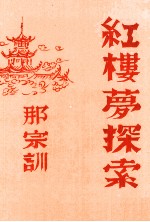 紅樓夢探索
那宗訓